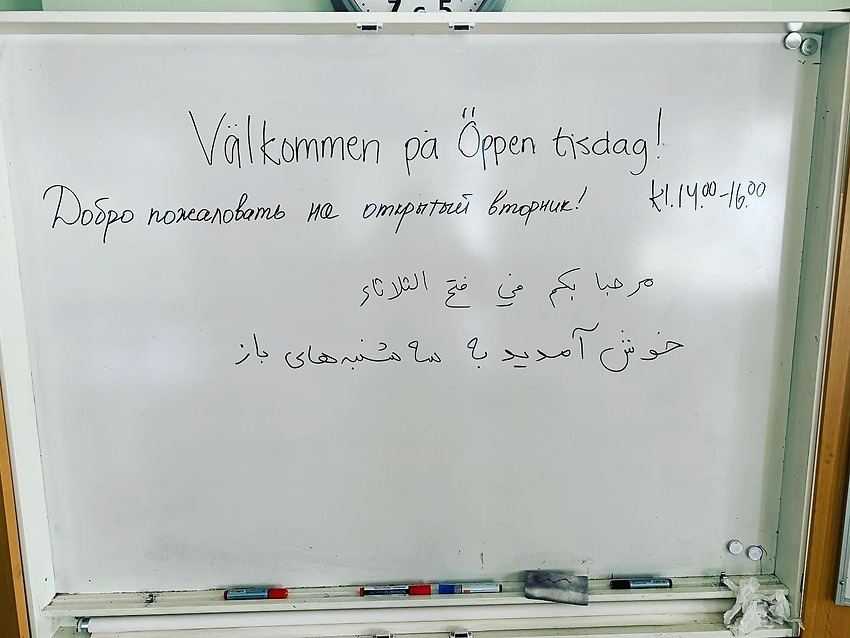 7 6 5
Välkommen på Öppen tisdag!
Добро пожаловать на открытый вторник! kl.14.00-16.00
مرحبا بكم في فتح الثلاثاء
خوش آمدید به سه شنبه‌های باز